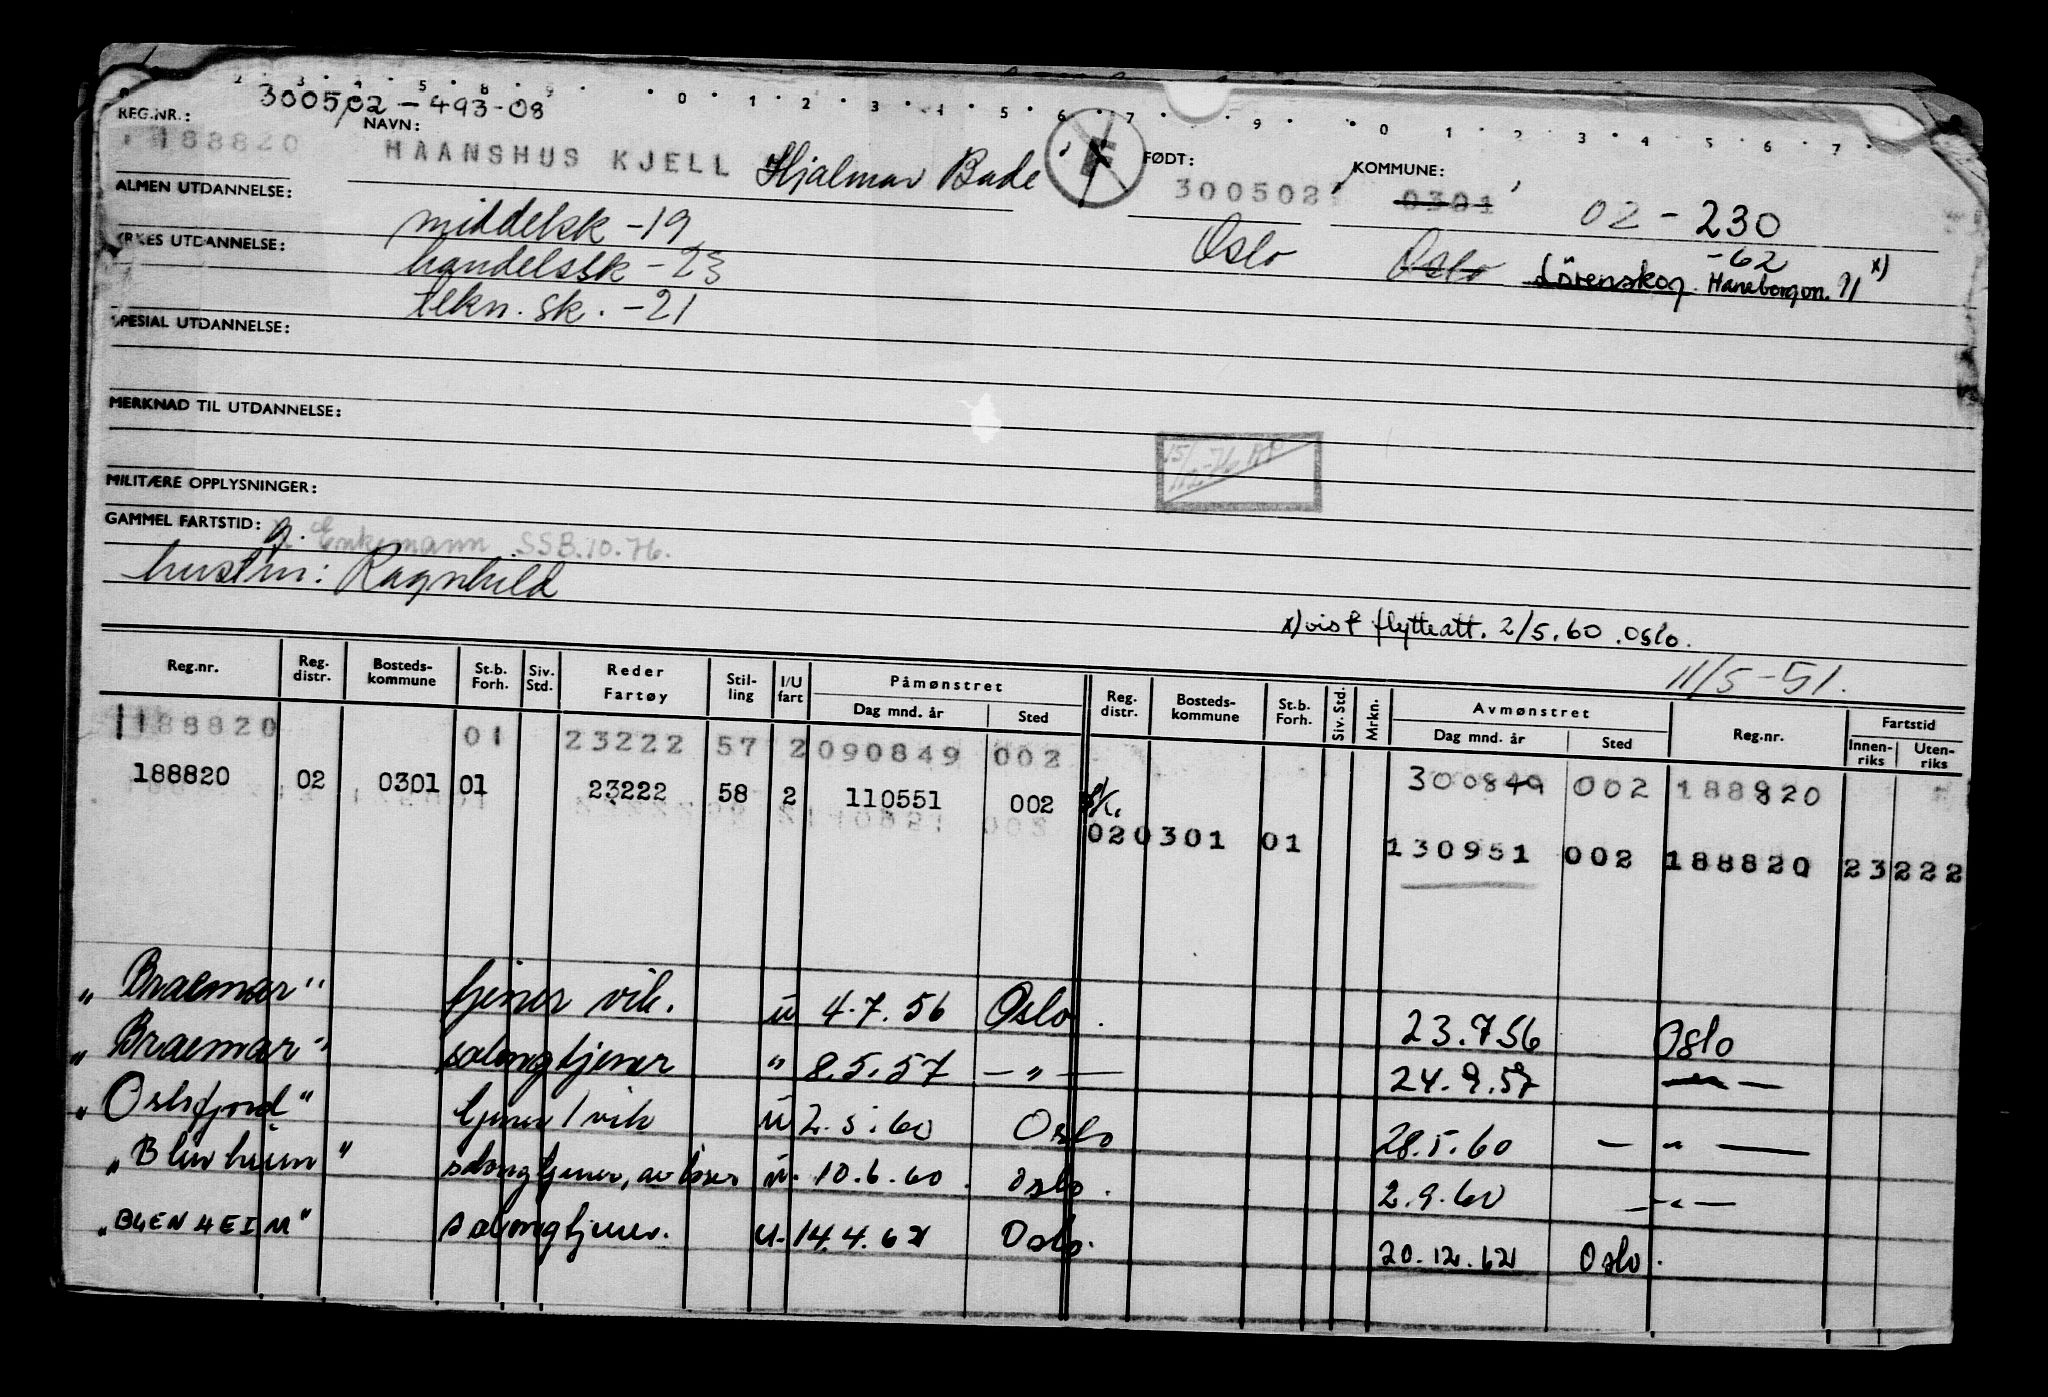 2 3 4 5 8 9 0 1 2 3 4 5 6 7 9 0 1 2 3 4 5 6 7
300502-493-08
REG.NR.: NAVN: FØDT: KOMMUNE:
188820 HAANSHUS KJELL Hjalmar Bade 300502 0301 02-230
ALMEN UTDANNELSE: middelsk -19 Oslo Oslo Lörenskog -62 Haneborgvn. 91 x)
YRKES UTDANNELSE: handelssk -23
tekn. sk. -21
SPESIAL UTDANNELSE:
MERKNAD TIL UTDANNELSE:
15/12-76
MILITÆRE OPPLYSNINGER:
GAMMEL FARTSTID: g. Enkemann SSB.10.76.
hustru: Ragnhild
x) vist flytteatt. 2/5.60. Oslo.
11/5-51.
Reg.nr. Reg. distr. Bosteds-kommune St.b. Forh. Siv. Std. Reder Fartøy Stil-ling I/U fart Påmønstret Dag mnd. år Sted Reg. distr. Bosteds-kommune St.b. Forh. Siv. Std. Mrkn. Avmønstret Dag mnd. år Sted Reg.nr. Fartstid Innen-riks Uten-riks
188820 01 23222 57 2 090849 002 300849 002 188820
188820 02 0301 01 23222 58 2 110551 002
02 0301 01 130951 002 188820 23222
"Braemar" tjener vik. u 4.7.56 Oslo. 23.7.56 Oslo
"Braemar" salongtjener " 8.5.57 — " — 24.9.57 — " —
"Oslofjord" tjener/vik u 2.5.60 Oslo 28.5.60 — " —
"Blenheim" salongtjener, avløser u. 10.6.60. Oslo. 2.9.60 — " —
"BLENHEIM" salongtjener. u. 14.4.62 Oslo. 20.12.62 Oslo.